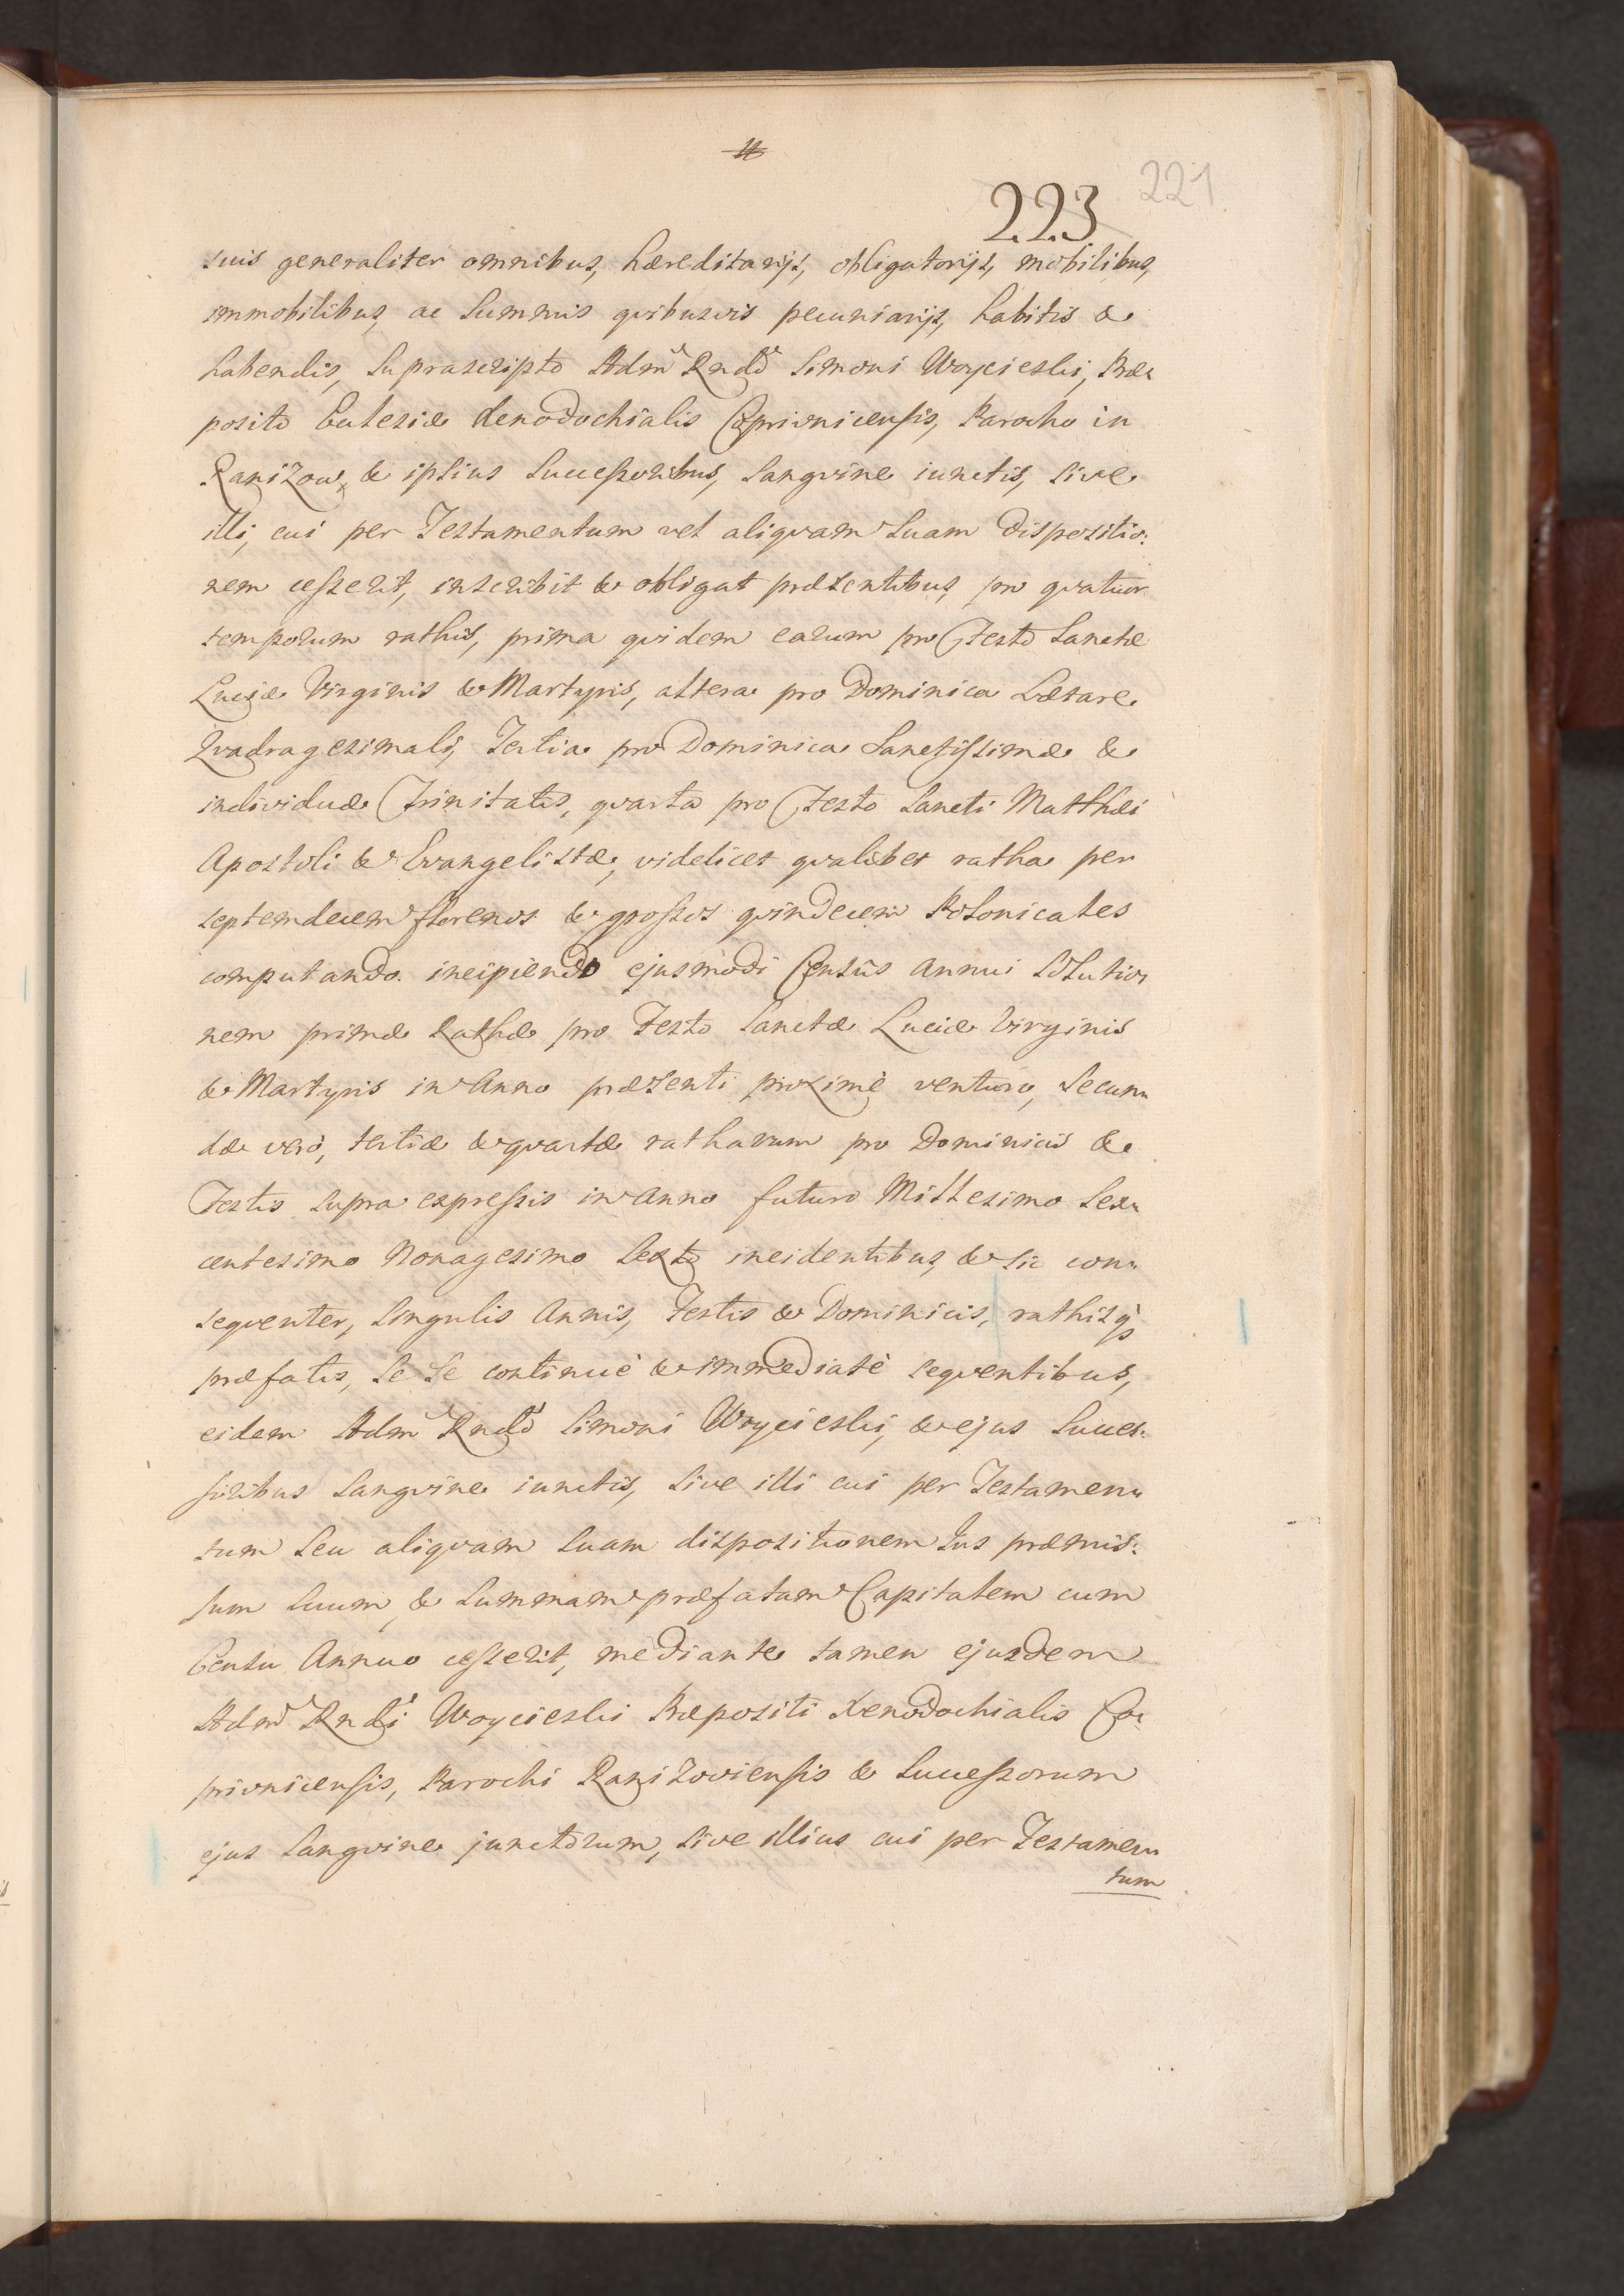 #
223 221
suis generaliter omnibus, hæreditarijs, obligatorijs, mobilibus,
immobilibus, ac Summis qvibusvis pecuniarijs, habitis &
habendis, Suprascripto Adm Rndo Simoni Woycieski, Præ-
posito Eclesiæ Xenodochialis Coprivnicensis, Parocho in
Ranizow & ipsius Successoribus, Sangvine iunctis, Sive
illi, cui per Testamentum vel aliqvam Suam Dispositio:
nem cesserit, inscribit & obligat præsentibus, pro qvatuor
temporum rathis, prima qvidem earum pro Festo Sanctæ
Luciæ Virginis & Martyris, altera pro Dominica Lætare
Qvadragesimali, Tertia pro Dominica Sanctissimæ &
individuæ Trinitatis, qvarta pro Festo Sancti Matthæi
Apostoli & Evangelistæ, videlicet qvalibet ratha per
septemdecem florenos & grossos qvindecem Polonicales
computando. incipiendo ejusmodi Census Annui Solutio-
nem primæ Rathæ pro Festo Sanctæ Luciæ Virginis
& Martyris in Anno præsenti proximè venturo, Secun-
dæ verò, tertiæ & qvartæ ratharum pro Dominicis &
Festis Supra expressis in Anno futuro Millesimo Sex-
centesimo Nonagesimo Sexto incidentibus, & sic con-
seqventer, Singulis Annis, Festis & Dominicis, rathisq
præfatis, Se Se continuè & immediatè seqventibus,
eidem Adm Rndo Simoni Woycieski, & ejus Succes:
soribus Sangvine iunctis, Sive illi cui per Testamen-
tum Seu aliqvam Suam dispositionem Jus præmis:
sum Suum & Summam præfatam Capitalem cum
Censu Annuo cesserit, mediante tamen ejusdem
Adm Rndi Woycieski Præpositi Xenodochialis Co-
privnicensis, Parochi Ranizoviensis & Successorum
ejus Sangvine junctorum, Sive illius cui per Testamen-
tum